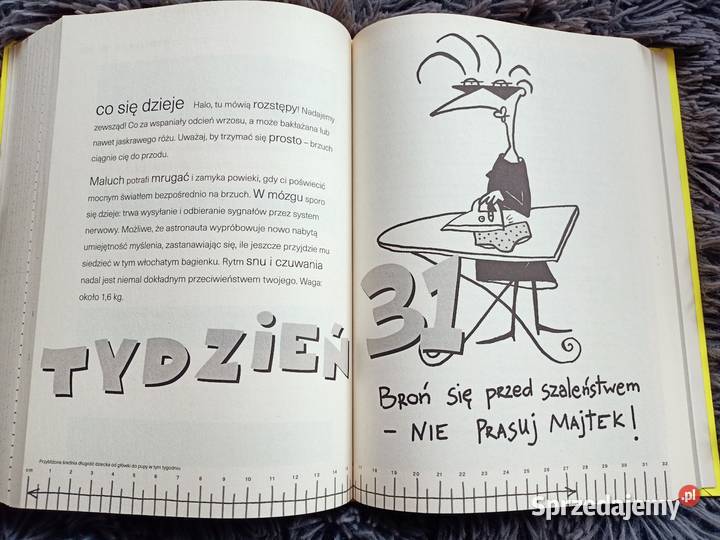 co się dzieje Halo, tu mówią rozstępy! Nadajemy
zewsząd! Co za wspaniały odcień wrzosu, a może bakłażana lub
nawet jaskrawego różu. Uważaj, by trzymać się prosto – brzuch
ciągnie cię do przodu.
Maluch potrafi mrugać i zamyka powieki, gdy ci poświecić
mocnym światłem bezpośrednio na brzuch. W mózgu sporo
się dzieje: trwa wysyłanie i odbieranie sygnałów przez system
nerwowy. Możliwe, że astronauta wypróbowuje nowo nabytą
umiejętność myślenia, zastanawiając się, ile jeszcze przyjdzie mu
siedzieć w tym włochatym bagienku. Rytm snu i czuwania
nadal jest niemal dokładnym przeciwieństwem twojego. Waga:
około 1,6 kg.
TYDZIEŃ 31
BROŃ SIĘ PRZED SZALEŃSTWEM
– NIE PRASUJ MAJTEK!
Przybliżona średnia długość dziecka od główki do pupy w tym tygodniu
cm 1 2 3 4 5 6 7 8 9 10 11 12 13 14 15 16 17 18 19 20 21 22 23 24 25 26 27 28 29 30 31 32
Sprzedajemy.pl